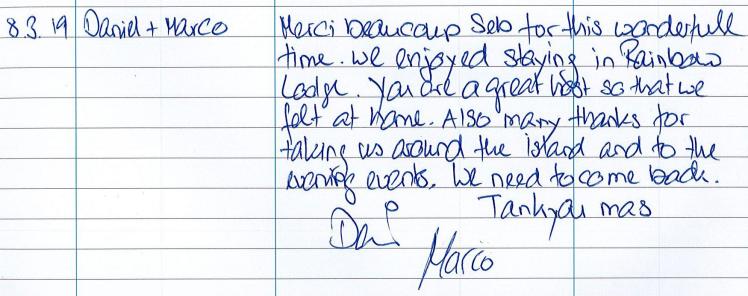 8.3.19 Daniel + Marco Merci beaucoup Seb for this wonderfull
time. We enjoyed staying in Rainbow
Lodge. You are a great host so that we
felt at home. Also many thanks for
taking us around the island and to the
evening events. We need to come back.
Tankyou mas
Dan
Marco